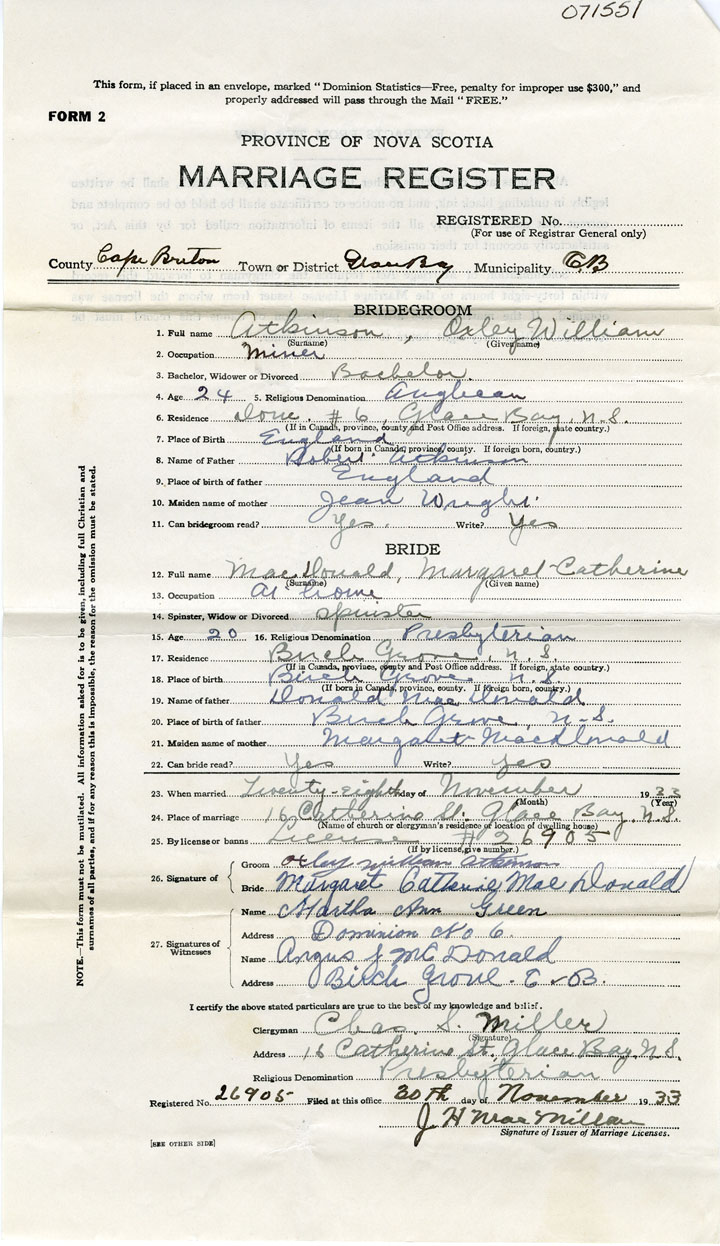 071551
This form, if placed in an envelope, marked "Dominion Statistics—Free, penalty for improper use $300," and
properly addressed will pass through the Mail "FREE."
FORM 2
PROVINCE OF NOVA SCOTIA
MARRIAGE REGISTER
REGISTERED No.
(For use of Registrar General only)
County Cape Breton Town or District Glace Bay Municipality C B
BRIDEGROOM
1. Full name Atkinson, Oxley William
(Surname) (Given name)
2. Occupation Miner
3. Bachelor, Widower or Divorced Bachelor.
4. Age 24 5. Religious Denomination Anglican
6. Residence Dom. #6, Glace Bay, N.S.
(If in Canada, province, county and Post Office address. If foreign, state country.)
7. Place of Birth England
(If born in Canada, province, county. If foreign born, country.)
8. Name of Father Robert Atkinson
9. Place of birth of father England
10. Maiden name of mother Jean Wright.
11. Can bridegroom read? Yes. Write? Yes
BRIDE
12. Full name MacDonald, Margaret Catherine
(Surname) (Given name)
13. Occupation At Home
14. Spinster, Widow or Divorced Spinster
15. Age 20 16. Religious Denomination Presbyterian
17. Residence Birch Grove, N.S.
(If in Canada, province, county and Post Office address. If foreign, state country.)
18. Place of birth Birch Grove N.S.
(If born in Canada, province, county. If foreign born, country.)
19. Name of father Donald MacDonald
20. Place of birth of father Birch Grove, N.S.
21. Maiden name of mother Margaret MacDonald
22. Can bride read? Yes Write? Yes
23. When married Twenty-eighth day of November 1933
(Month) (Year)
24. Place of marriage 16 Catherine St. Glace Bay, N.S.
(Name of church or clergyman's residence or location of dwelling house)
25. By license or banns License # 26905
(If by license, give number.)
26. Signature of
Groom Oxley William Atkinson
Bride Margaret Catherine MacDonald
27. Signatures of Witnesses
Name Martha Ann Green
Address Dominion No 6.
Name Angus J McDonald
Address Birch Grove. C.B.
I certify the above stated particulars are true to the best of my knowledge and belief.
Clergyman Chas. S. Miller
(Signature)
Address 16 Catherine St. Glace Bay N.S.
Religious Denomination Presbyterian
Registered No. 26905 Filed at this office 30th day of November 1933
J H MacMillan
Signature of Issuer of Marriage Licenses.
[SEE OTHER SIDE]
NOTE.—This form must not be mutilated. All information asked for is to be given, including full Christian and
surnames of all parties, and if for any reason this is impossible, the reason for the omission must be stated.